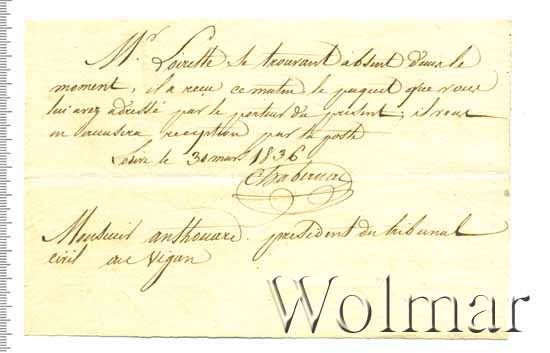 Mr. Loirette se trouvant absent dans le
moment, il a recu ce matin le paquet que vous
lui avez adressé par le porteur du présent; il vous
en accusera reception par la poste
le 30 mars 1836
Monsieur anthouard president du tribunal
civil au vigan
Wolmar